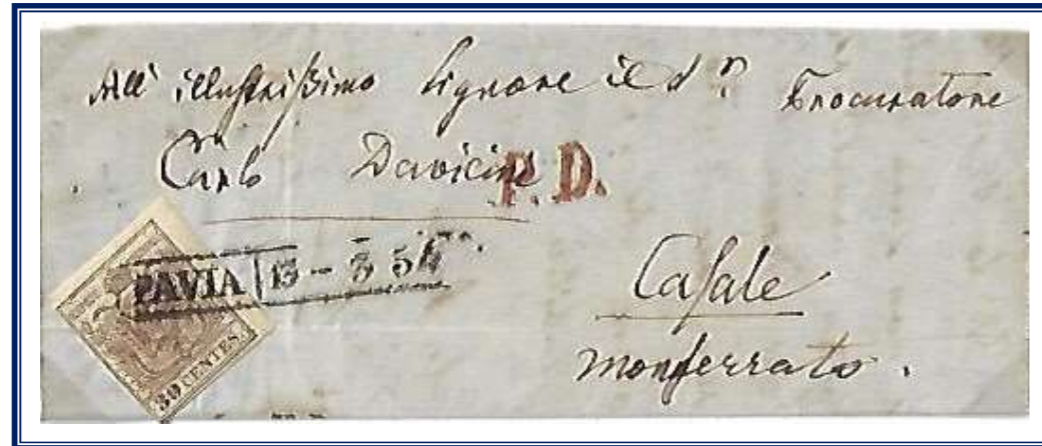 All' illustrissimo Signore il d.r Procuratore
Carlo Davicini
P.D.
PAVIA 13 - 3 54
Casale
Monferrato.
30 CENTES.